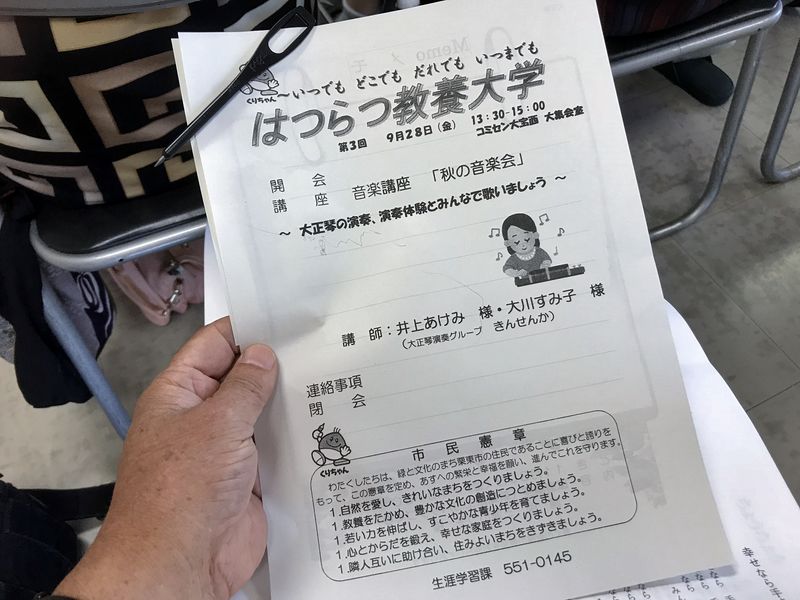 Memo メモ
くりちゃん
～いつでも どこでも だれでも いつまでも
はつらつ教養大学
第3回 9月28日(金) 13:30-15:00
コミセン大宝西 大集会室
開 会
講 座 音楽講座 「秋の音楽会」
～ 大正琴の演奏、演奏体験とみんなで歌いましょう ～
講 師：井上あけみ 様・大川すみ子 様
(大正琴演奏グループ きんせんか)
連絡事項
閉 会
くりちゃん
市 民 憲 章
わたくしたちは、緑と文化のまち栗東市の住民であることに喜びと誇りを
もって、この憲章を定め、あすへの繁栄と幸福を願い、進んでこれを守ります。
1.自然を愛し、きれいなまちをつくりましょう。
1.教養をたかめ、豊かな文化の創造につとめましょう。
1.若い力を伸ばし、すこやかな青少年を育てましょう。
1.心とからだを鍛え、幸せな家庭をつくりましょう。
1.隣人互いに助け合い、住みよいまちをきずきましょう。
生涯学習課 551-0145
幸せなら手